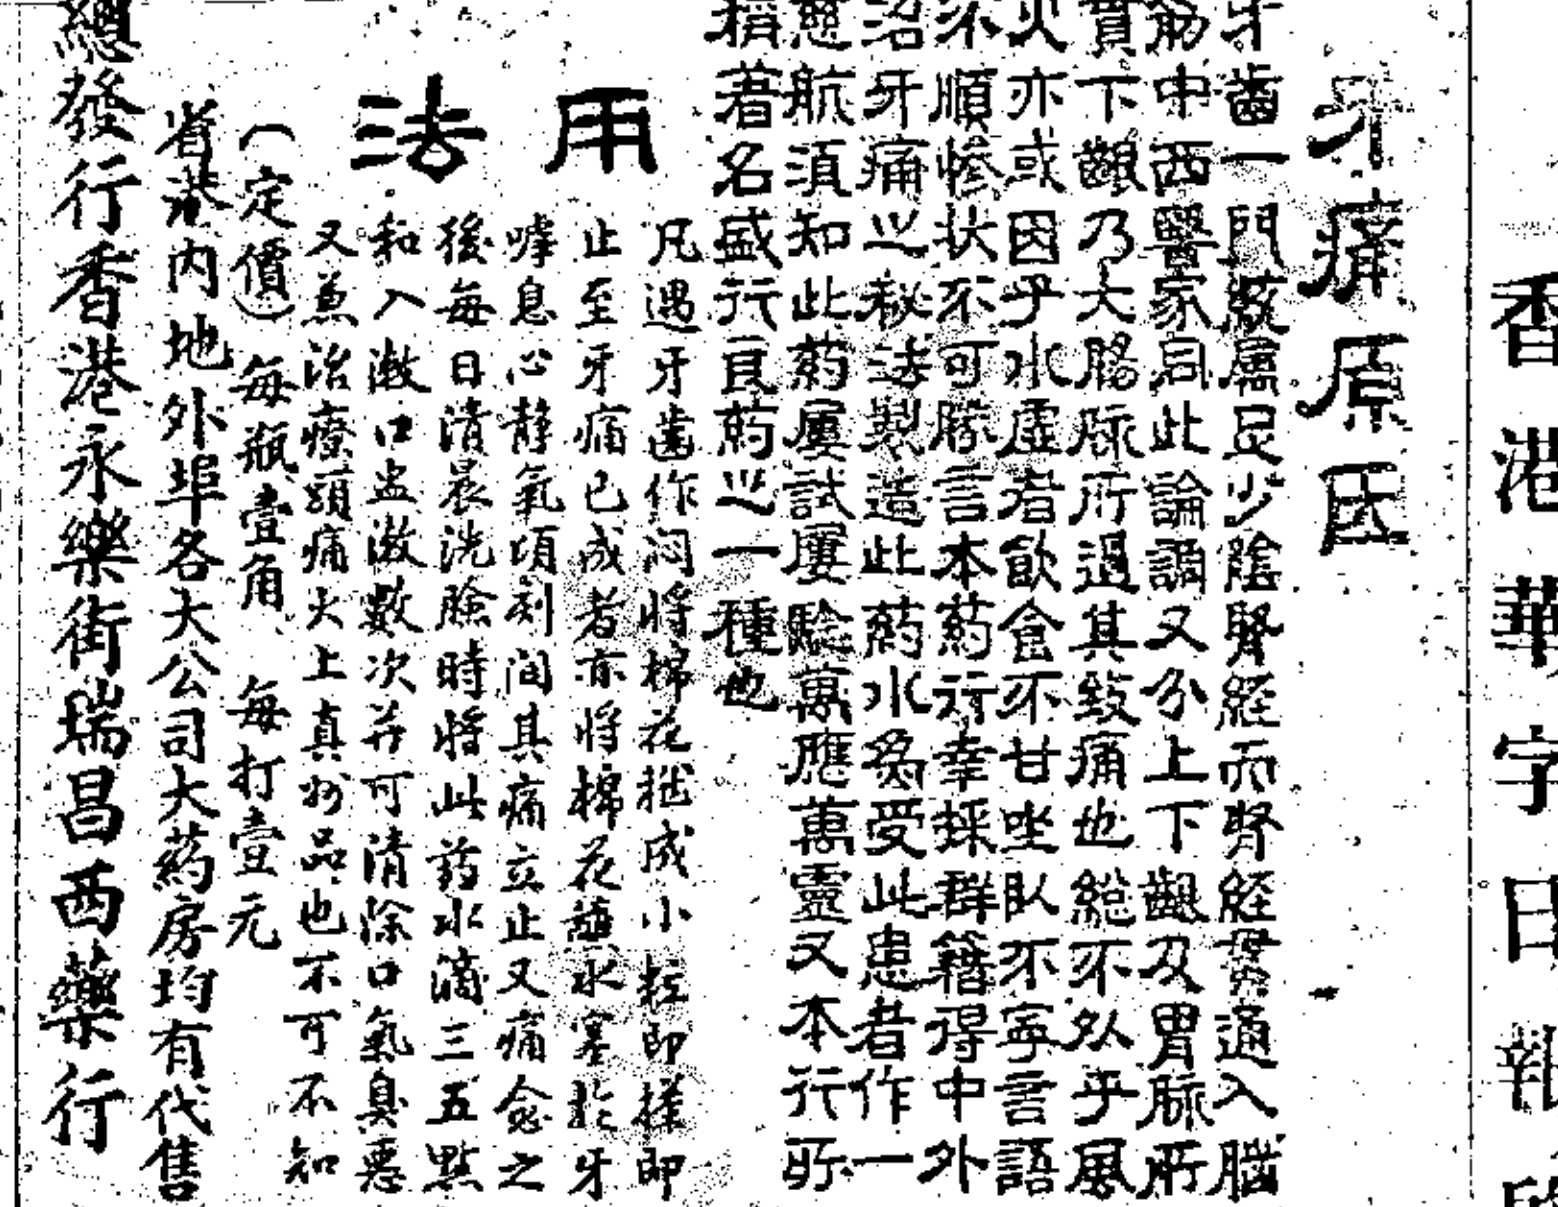 香港華字日報
牙痛原因
牙齒一門原屬足少陰腎経而腎経毋通入腦
筋中西醫家同此論調又分上下齦及胃脉所
貫下齦乃大腸脉所過其致痛也總不外乎風
火亦或因乎水虛者飲食不甘坐臥不寧言語
不順慘状不可勝言本葯行幸採群籍得中外
治牙痛之秘法製造此葯水為受此患者作一
慈航須知此葯屢試屢驗萬應萬靈又本行所
稱著名盛行良葯之一種也
用法
凡遇牙齒作悶將棉花搓成小粒即搽即
止至牙痛已成者亦將棉花蘸水塞於牙
罅息心靜氣頃刻间其痛立止又痛愈之
後每日清晨洗臉時將此葯水滴三五點
和入漱口盅漱數次并可清除口氣臭惡
又兼治療頭痛火上真妙品也不可不知
(定價)每瓶壹角 每打壹元
省港内地外埠各大公司大葯房均有代售
總發行香港永樂街瑞昌西藥行